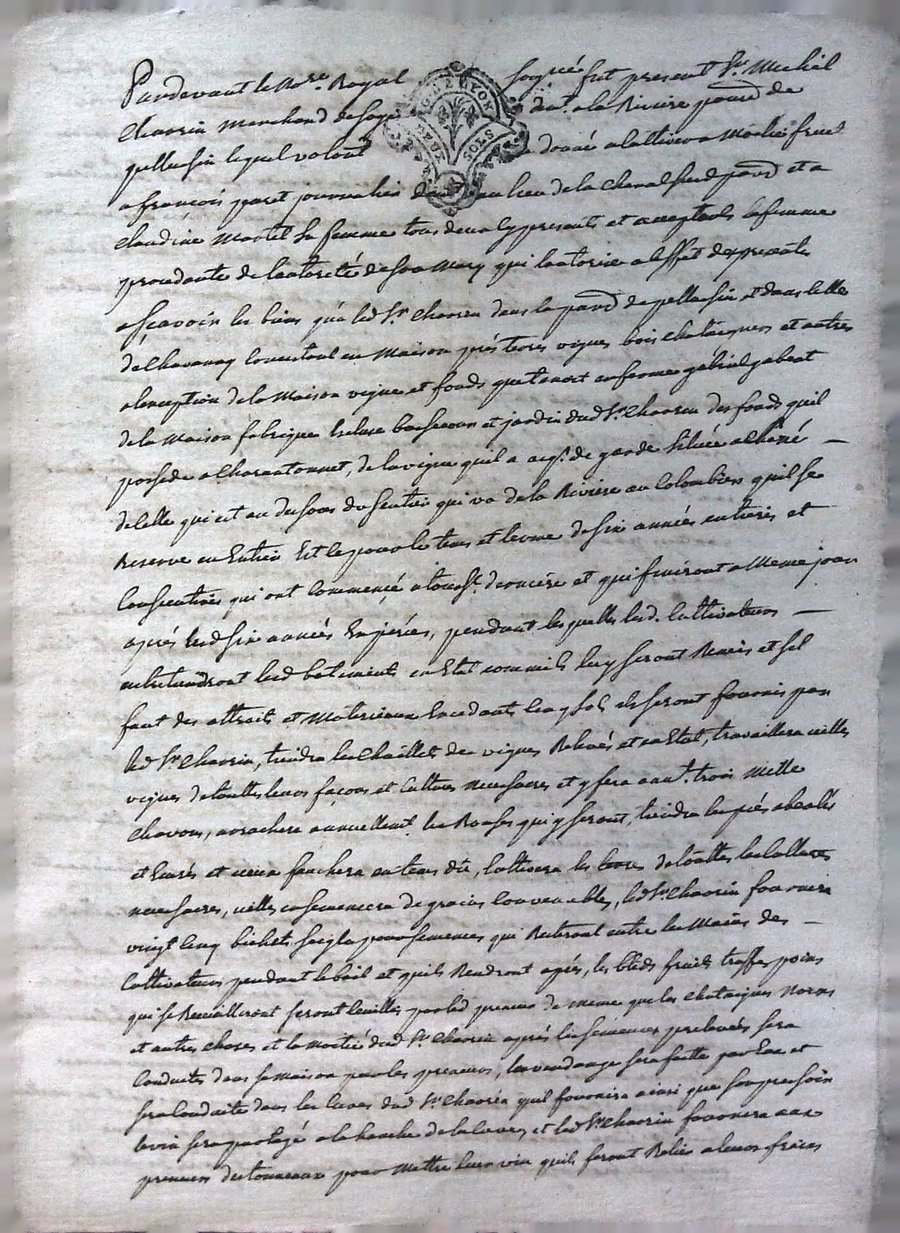 Pardevant le No.re Royal sousigné fut present Sr. Michel
Chavrin Marchand de soye dmt. a la Riviere paroisse de
pellussin lequel volont. a donné a cultiver a Moitié fruit
a françois paret journalier dmt. au lieu de la Cheval susd. paroisse et a
Claudine Martel sa femme tous deux cy presents et acceptants la femme
procedante de l'autorité de son Mary qui l'autorise a l'effet des presentes
a sçavoir les biens qu'a led Sr. Chavrin dans la paroisse de pellussin et dans celle
de Chavanay consistant en Maison prés terres vignes bois chataigners et autres
a l'exception de la Maison vigne et fonds que tenoit en ferme gabriel gabert
de la Maison fabrique Ecluse bassecour et jardin dud Sr. Chavrin des fonds qu'il
possede a Charantonnet, de la vigne qu'il a acq. de garde située a Coté —
de celle qui est au dessous du sentier qui va de la Riviere au Colombier qu'il se
Reserve en Entier Et ce pour le tems et terme de six années entieres et
Consecutives qui ont Commencé a touss.t derniere et qui finiront a Meme jour
aprés lesd six années Expirées, pendant lesquelles lesd. Cultivateurs —
entretiendront lesd batiments en Etat comme ils leur seront Remis et s'il
faut des attraits et Materiaux Excedants cinq sols ils seront fournis par
led Sr. Chavrin, tiendra les Chaillets des vignes Relevés et en Etat, travaillera icelles
vignes de touttes leurs façons et Cultures necessaires et y fera ann.t trois Mille
Chavons, arrachera annuellem.t les Ronses qui y seront, tiendra les prés abealés
et Curés et iceux fauchera en tems dû, Cultivera les terres de touttes les Cultures
necessaires, icelles ensemencera de grains convenables, led Sr. Chavrin fournira
vingt cinq bichets seigle pour semences qui Resteront entre les Mains des —
Cultivateurs pendant le bail et qu'ils Rendront aprés, les bleds fruits truffes pois
qui se Recuilliront seront Ceuillis par lesd preneurs de meme que les chataignes noix
et autres choses et la moitié dud Sr. Chavrin aprés les semences prelevées sera
Conduite dans sa Maison par les preneurs, la vendange sera faitte par Eux et
sera Conduite dans les Cuves dud Sr. Chavrin qu'il fournira ainsi que son pressoir
le vin sera partagé a la hanche de la Cuve, et led Sr. Chavrin fournira aux
preneurs des tonneaux pour Mettre leur vin qu'ils feront Relier a leurs fraix